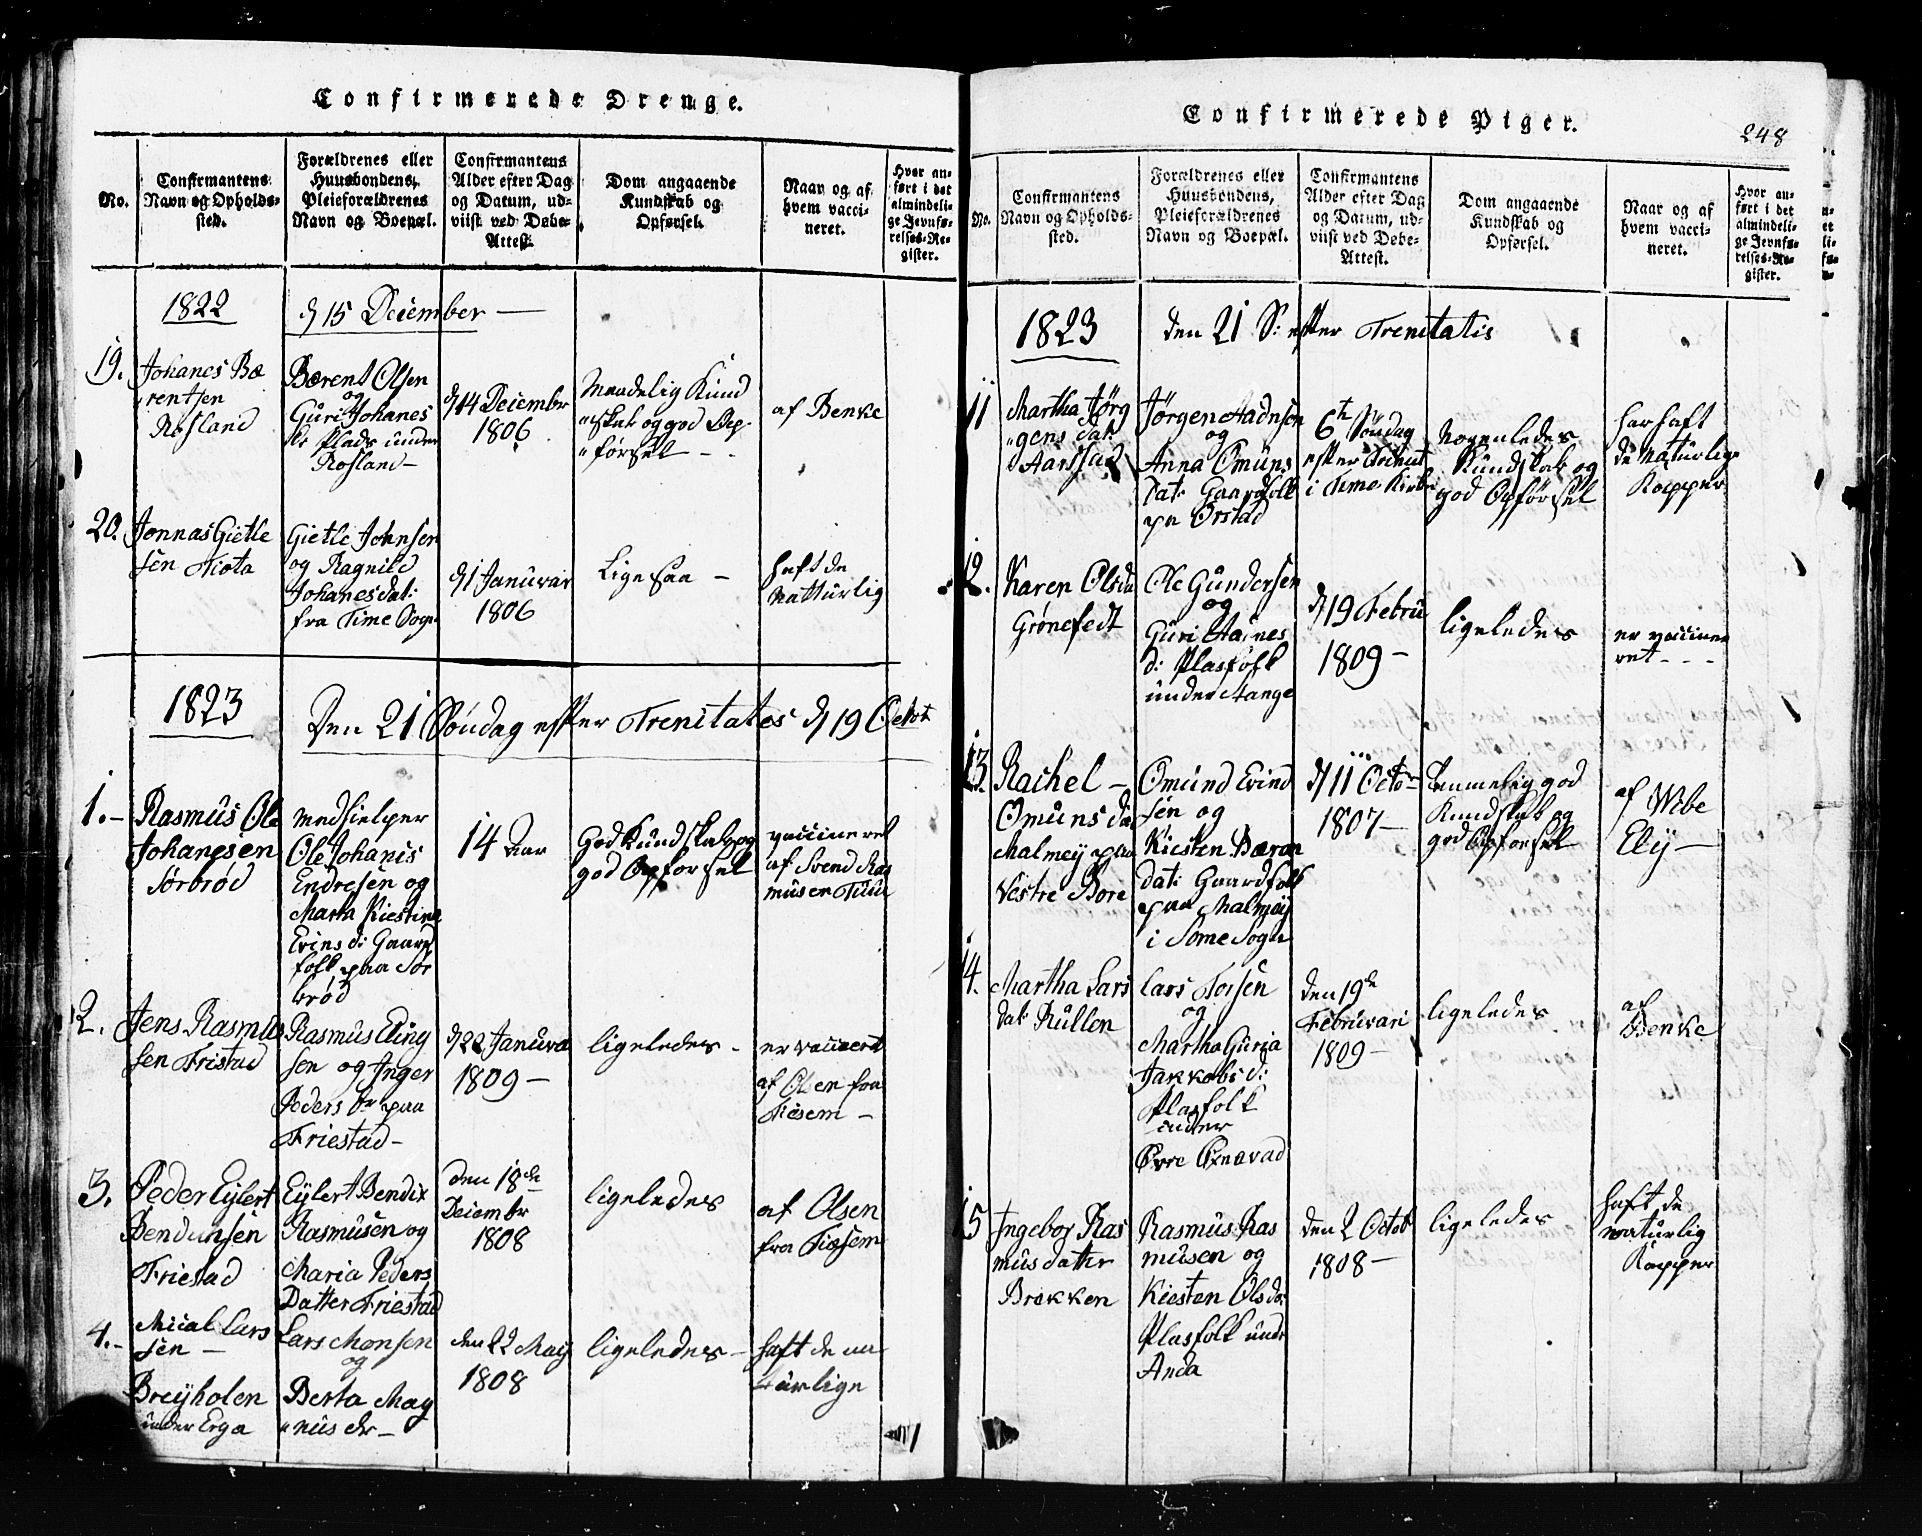 Confirmerede Drenge.
No.
Confirmantens
Navn og Opholds-
sted.
Forældrenes eller
Huusbondens,
Pleieforældrenes
Navn og Boepæl.
Confirmantens
Alder efter Dag
og Datum, ud-
viist ved Døbe-
Attest.
Dom angaaende
Kundskab og
Opførsel.
Naar og af
hvem vacci-
neret.
Hvor an-
ført i det
almindeli-
ge Jevnfø-
relses-Re-
gister.
1822
d 15 December
19.
Johanes Bæ
rentsen
Rosland
Bærent Olsen
og
Guri Johanes
dr Plads under
Rosland
d 14 December
1806
Maadelig Kund
"skab og god Op
"førsel
af Benke
20.
Jonnas Gietle
sen Tiøta
Gietle Johnsen
og Ragnild
Johanesdat:
fra Time Sogn
d 1 Januvar
1806
Lige saa
haft de
natturlig
1823
Den 21 Søndag efter Trenitates d 19 Octob
1.
Rasmus Ole
Johanesen
Sørbrød
medhielper
Ole Johanis
Endresen og
Marta Kiestina
Evins d: Gaard
folk paa Sør
brød
14 Aar
God Kundskab og
god Opførsel
vaccineret
af Svend Ras
musen Tuu
2.
Jens Rasmus
sen Fristad
Rasmus Eling
sen og Inger
Peders dr paa
Friestad
d 22 Januva
1809
ligeledes
er vaccert
af Olsen fra
Tiøsem
3.
Peder Eylert
Friestad
Eylert Bendix
Rasmusen og
Maria Peders
Datter Friestad
den 18de
Decembr
1808
ligeledes
af Olsen
fra Tiøsem
4.
Mical Lars
sen
Breyholen
under Erga
Lars Monsen
og
Berta Mag
"nus dr
den 22 May
1808
ligeledes
haft de na
turlige
Confirmerede Piger.
248
No.
Confirmantens
Navn og Opholds-
sted.
Forældrenes eller
Huusbondens,
Pleieforældrenes
Navn og Boepæl.
Confirmantens
Alder efter Dag
og Datum, ud-
viist ved Døbe-
Attest.
Dom angaaende
Kundskab og
Opførsel.
Naar og af
hvem vacci-
neret.
Hvor an-
ført i det
almindeli-
ge Jevnfø-
relses-Re-
gister.
1823
den 21 S: efter Trenitatis
11
Martha Jørg
"gens dat
Jørgen Aadnsen
og
Anna Omuns
dat: Gaardfolk
paa Ørstad
6te Søndag
efter
i Time Kirke
Nogenledes
Kundskab og
god Opførsel
har haft
de naturlige
Kopper
12.
Karen Olsda
Grønefedt
Ole Gundersen
og
Guri Aa?nes
d: Plasfolk
under Stange
d 19 Februa
1809
ligeledes
er vaccinee
ret
13.
Rachel
Omuns da
Malmey paa
Vestre Bore
Omund Evind
sen og
Kiesten Bæren
dat: Gaardfolk
paa Malmøy
i Some Sogn
d 11 Octo
1807
temmelig god
Kundskab og
god Opførsel
af Wibe
Eley
14.
Martha Lars
dat: Rullen
Lars Torsen
og
Martha Guria
Jakkobs d:
Plasfolk
under
Øvre Øxnavad
den 19de
Februvari
1809
ligeledes
af
Benke
15
Ingebor Ras
mus datter
Brekken
Rasmus Ras
musen og
Kiesten Olsda
Plasfolk unde
Anda
den 2 Octob
1808
ligeledes
haft de
naturlig
Kopper